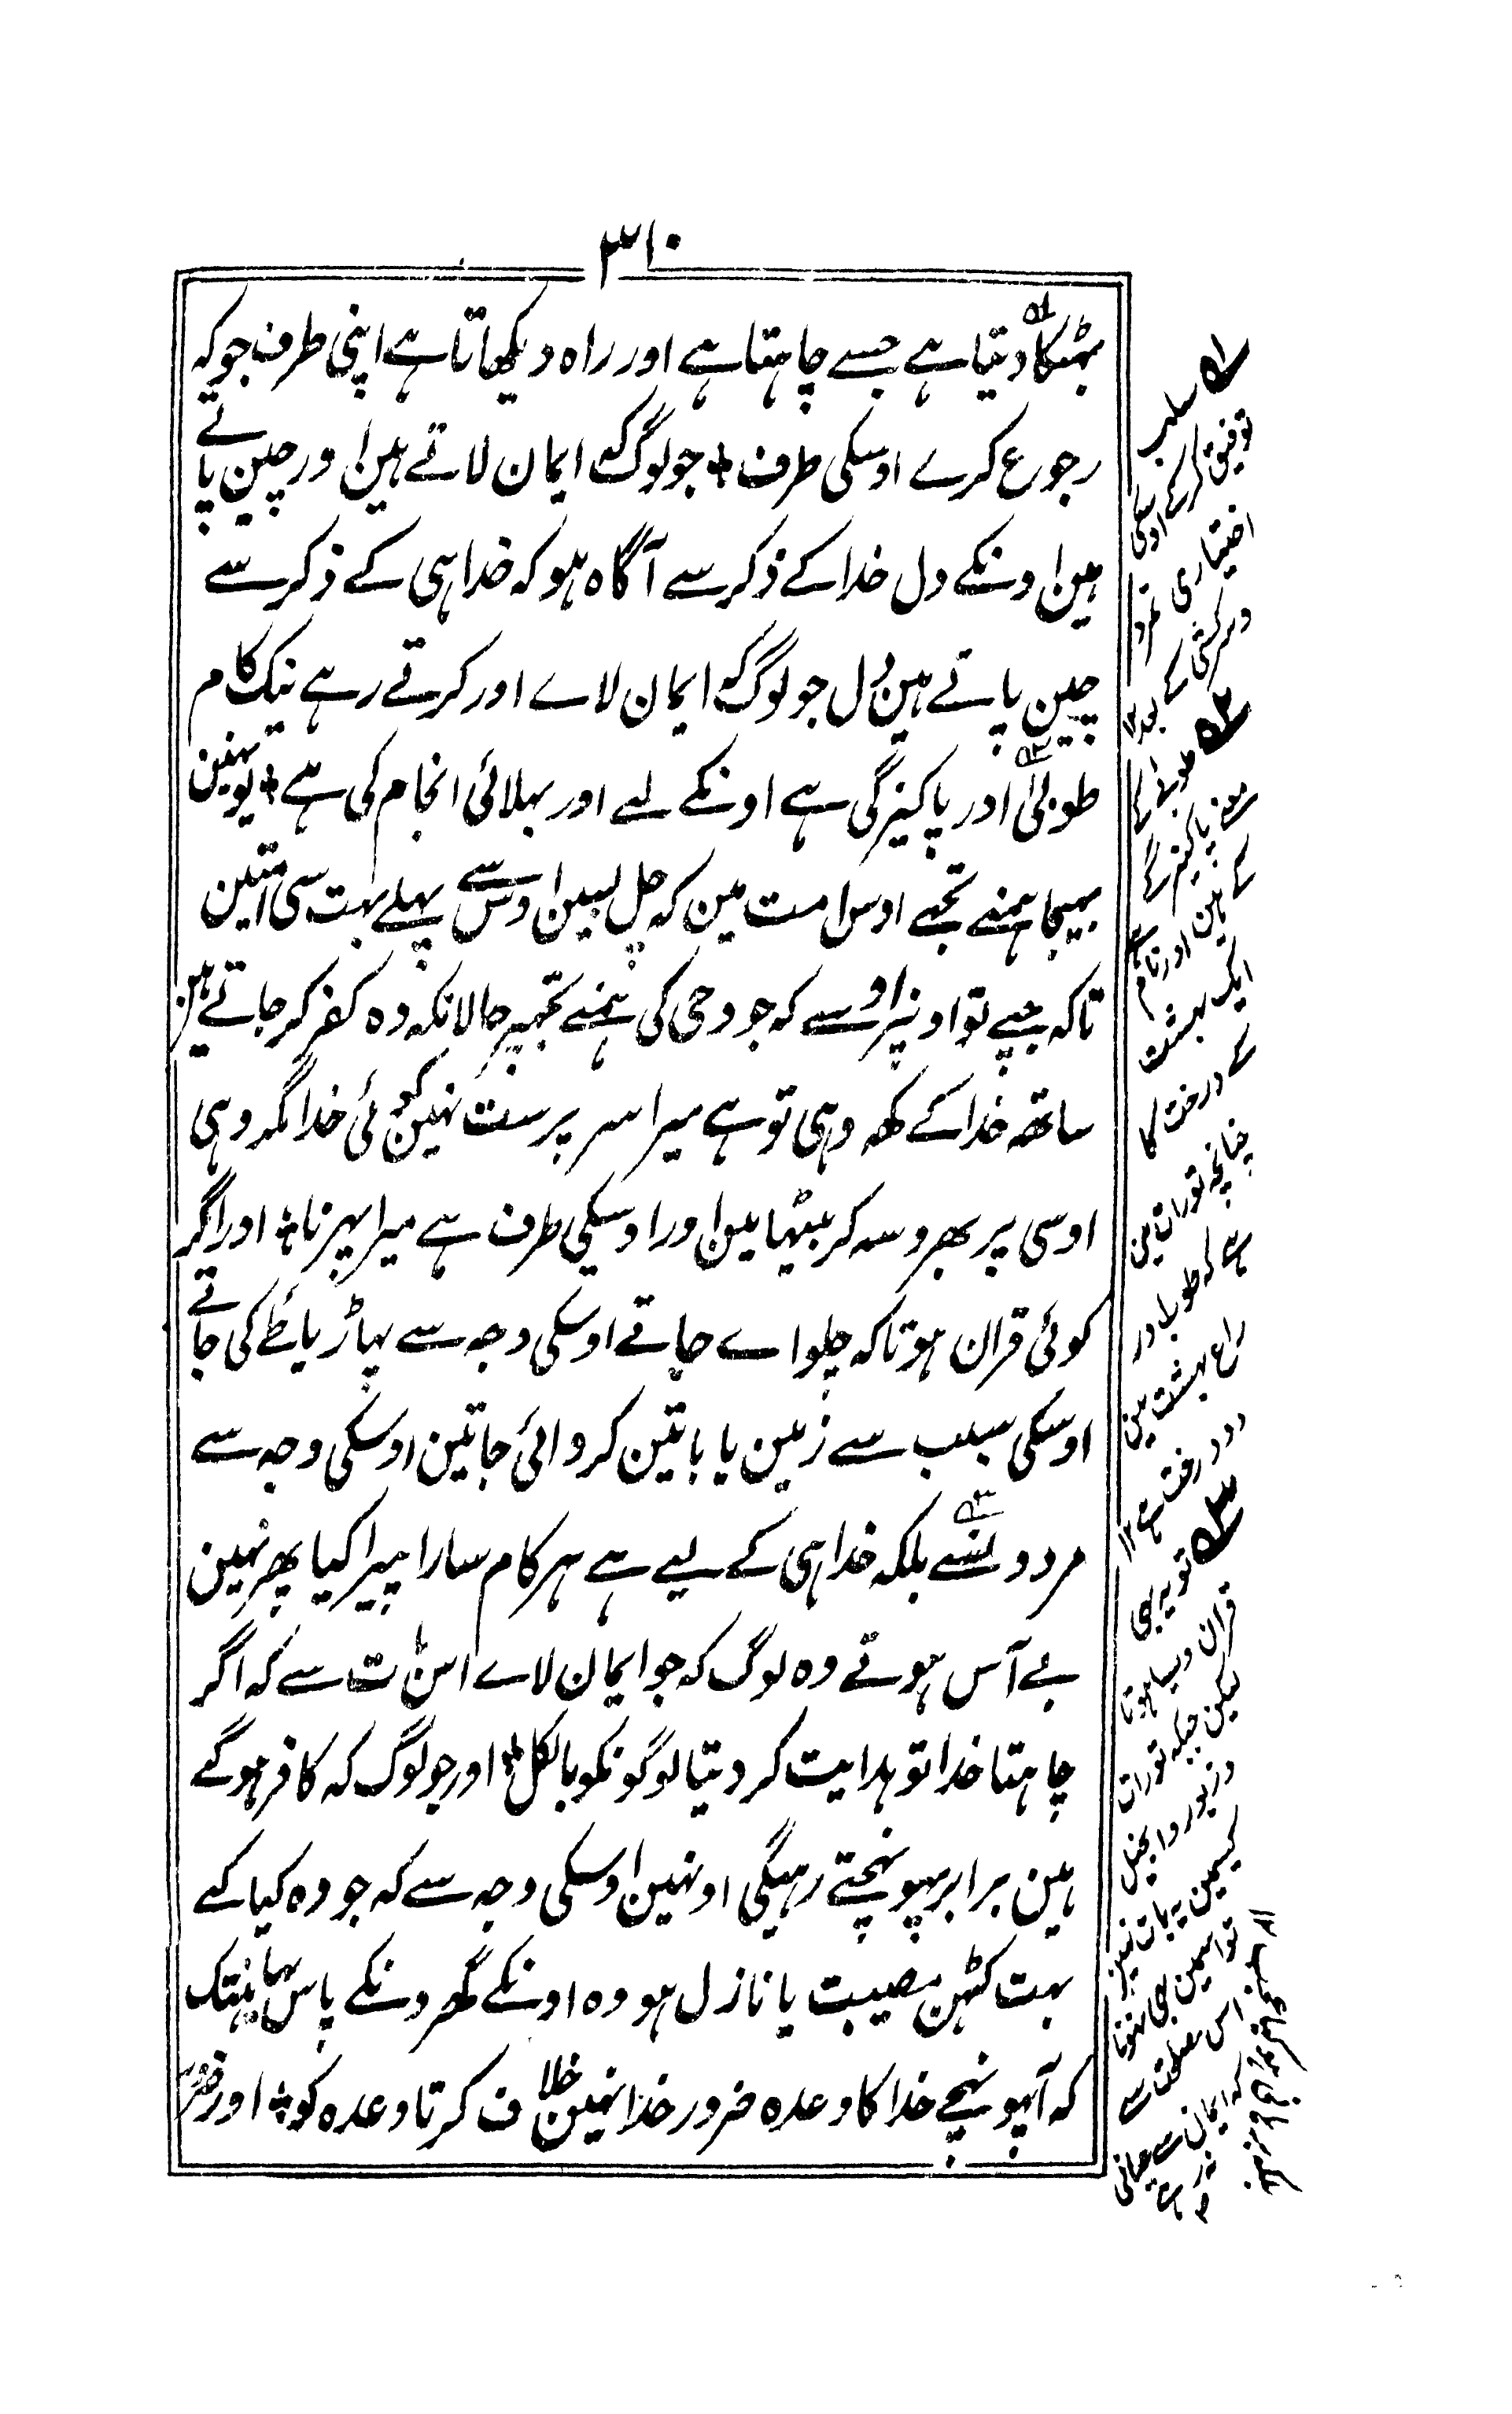 ۳۱۰
بہٹکا دیتا ہے جسے چاہتا ہے اور راہ دیکھاتا ہے اپنی طرف جو کہ
رجوع کرے اوسکی طرف جو لوگ کہ ایمان لاتے ہین اور چین پاتے
ہین اونکے دل خدا کے ذکر سے آگاہ ہو کہ خدا ہی کے ذکر سے
چین پاتے ہین دل جو لوگ کہ ایمان لاے اور کرتے رہے نیک کام
طوبیٰ اور پاکیزگی ہے اونکے لیے اور بہلائی انجام کی ہے یونہین
بہیجا ہمنے تجھے اوس امت مین کہ چل بسین اوس سے پہلے بہت سی امتین
تاکہ جپے تو اونپر اوسے کہ جو وحی کی ہمنے تجھپر حالانکہ وہ کفر کر جاتے ہین
ساتھ خدا کے کہہ وہی تو ہے میرا سر پرست نہین کوئی خدا مگر وہی
اوسی پر بھروسہ کر بیٹھا مین اور اوسیکی طرف ہے میرا پہرنا اور اگر
کوئی قران ہوتا کہ چلواے جاتے اوسکی وجہ سے پہاڑ یا طے کی جاتے
اوسکی سبب سے زمین یا باتین کروائی جاتین اوسکی وجہ سے
مردونسے بلکہ خدا ہی کے لیے ہے ہر کام سارا پیرا کیا پھر نہین
بے آس ہوتے وہ لوگ کہ جو ایمان لاے اس بات سے کہ اگر
چاہتا خدا تو ہدایت کر دیتا لوگونکو بالکل اور جو لوگ کہ کافر ہوگئے
ہین برابر پہونچتے رہیگی اونہین اوسکی وجہ سے کہ جو وہ کیا کے
بہت کٹہن مصیبت یا نازل ہو وہ اونکے گھرونکے پاس یہانتک
کہ آپہونچے خدا کا وعدہ ضرور خدا نہین خلاف کرتا وعدہ کو اور ضرور
۵۱ سلب
توفیق کرکے اوسکی
اختیاری تمرد
و سرکشی کے
بعد ۱۲
۵۲ طوبیٰ کے
معنے پاکیزگی
کے ہین اور نام ہے
ایک بہشت
کے درخت کا
چنانچہ تورات مین
ہے کہ طوبیٰ اور
راع بہشت مین
دو درخت ہے ۱۲
۵۳ تو یہ ہی
قران ویسا ہوتا
لیکن جبکہ تورات
و زبور و انجیل
کسیمین یہ بات نہین
تو اسمین ہی نہونا
اس مصلحت سے